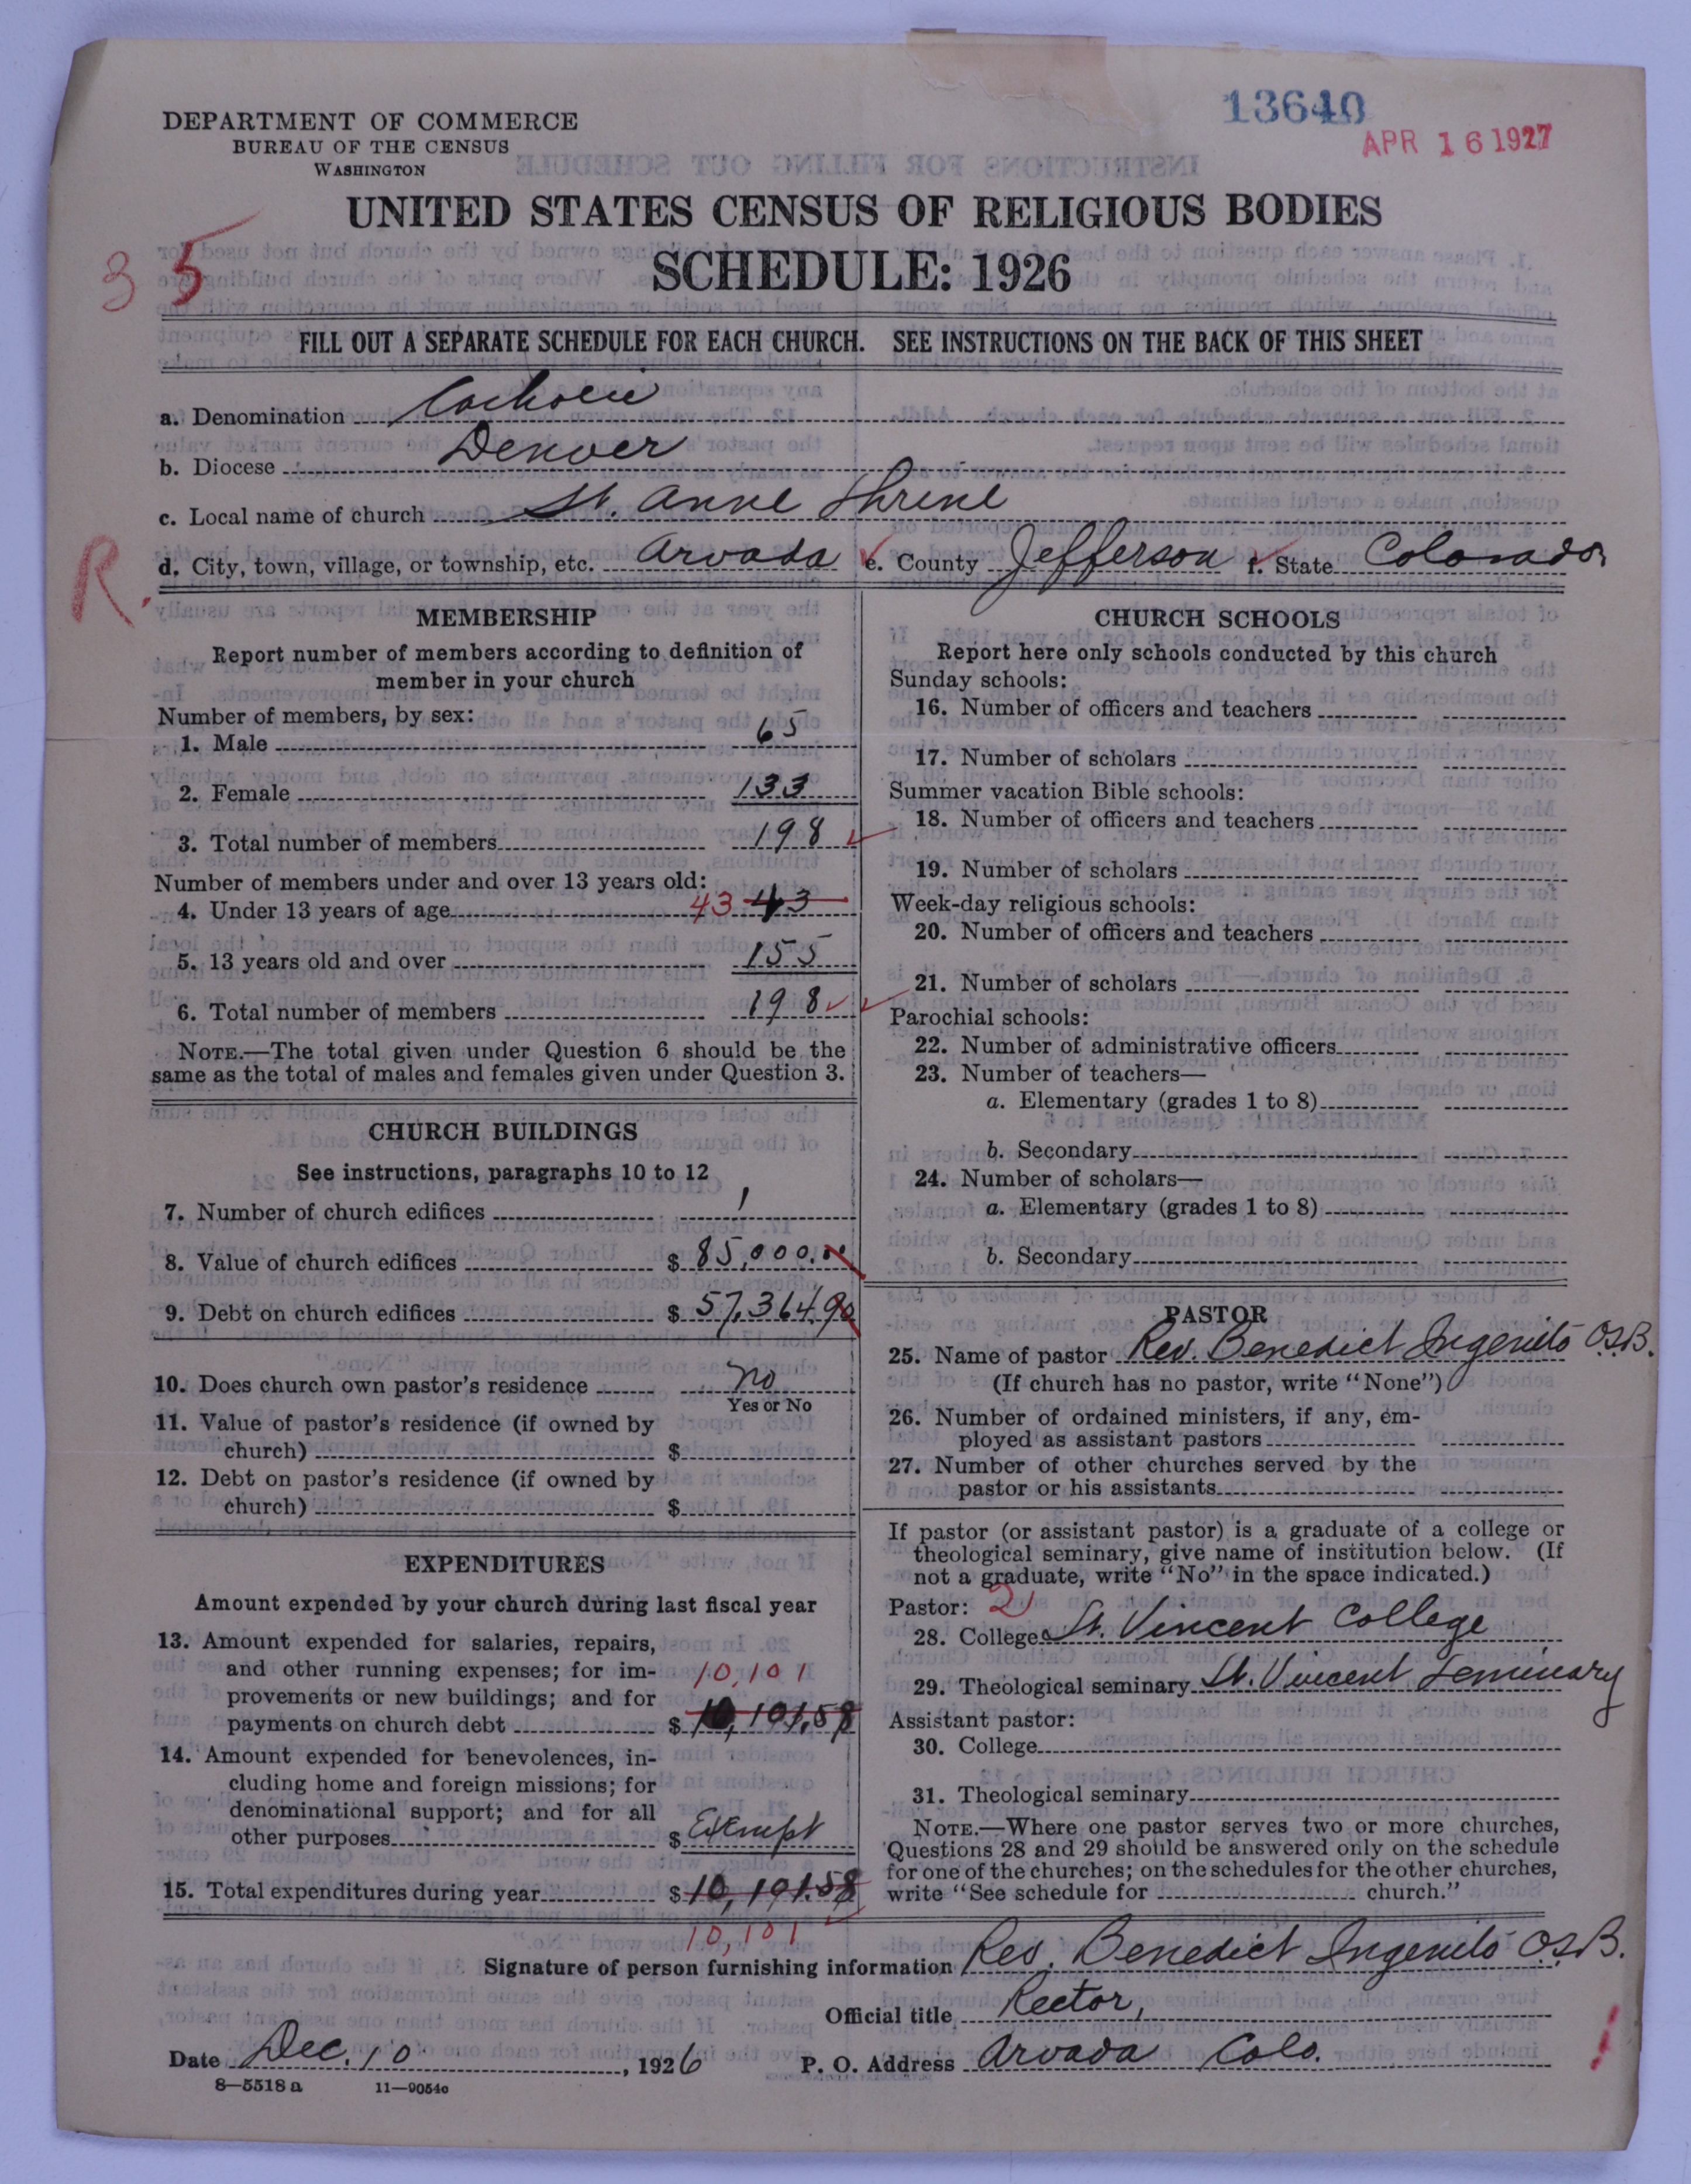 13640
APR 16 1927
DEPARTMENT OF COMMERCE
BUREAU OF THE CENSUS
WASHINGTON
UNITED STATES CENSUS OF RELIGIOUS BODIES
35
SCHEDULE: 1926
FILL OUT A SEPARATE SCHEDULE FOR EACH CHURCH. SEE INSTRUCTIONS ON THE BACK OF THIS SHEET
a. Denomination Catholic
b. Diocese Denver
c. Local name of church St. Anne Shrine
R. d. City, town, village, or township, etc. Arvada e. County Jefferson f. State Colorado
MEMBERSHIP
Report number of members according to definition of
member in your church
Number of members, by sex:
1. Male 65
2. Female 133
3. Total number of members 198
Number of members under and over 13 years old:
4. Under 13 years of age 43 43
5. 13 years old and over 155
6. Total number of members 198
NOTE.—The total given under Question 6 should be the
same as the total of males and females given under Question 3.
CHURCH BUILDINGS
See instructions, paragraphs 10 to 12
7. Number of church edifices 1
8. Value of church edifices $ 85,000.00
9. Debt on church edifices $ 57,364.90
10. Does church own pastor's residence no
Yes or No
11. Value of pastor's residence (if owned by
church) $
12. Debt on pastor's residence (if owned by
church) $
EXPENDITURES
Amount expended by your church during last fiscal year
13. Amount expended for salaries, repairs,
and other running expenses; for im- 10,101
provements or new buildings; and for
payments on church debt $ 10,101.58
14. Amount expended for benevolences, in-
cluding home and foreign missions; for
denominational support; and for all
other purposes $ Exempt
15. Total expenditures during year $ 10,101.58
10,101
CHURCH SCHOOLS
Report here only schools conducted by this church
Sunday schools:
16. Number of officers and teachers
17. Number of scholars
Summer vacation Bible schools:
18. Number of officers and teachers
19. Number of scholars
Week-day religious schools:
20. Number of officers and teachers
21. Number of scholars
Parochial schools:
22. Number of administrative officers
23. Number of teachers—
a. Elementary (grades 1 to 8)
b. Secondary
24. Number of scholars—
a. Elementary (grades 1 to 8)
b. Secondary
PASTOR
25. Name of pastor Rev. Benedict Ingenito O.S.B.
(If church has no pastor, write "None")
26. Number of ordained ministers, if any, em-
ployed as assistant pastors
27. Number of other churches served by the
pastor or his assistants
If pastor (or assistant pastor) is a graduate of a college or
theological seminary, give name of institution below. (If
not a graduate, write "No" in the space indicated.)
Pastor: 2
28. College St. Vincent College
29. Theological seminary St. Vincent Seminary
Assistant pastor:
30. College
31. Theological seminary
NOTE.—Where one pastor serves two or more churches,
Questions 28 and 29 should be answered only on the schedule
for one of the churches; on the schedules for the other churches,
write "See schedule for church."
Signature of person furnishing information Rev. Benedict Ingenito O.S.B.
Official title Rector,
Date Dec. 10, 1926 P. O. Address Arvada Colo.
8—5518 a 11—9054c